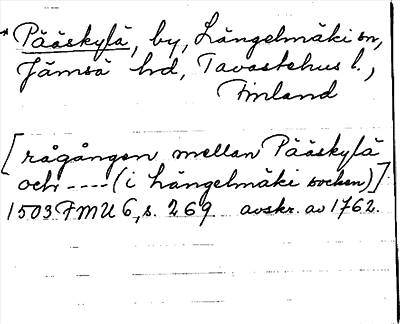 * Pääskylä, by, Längelmäki sn,
Jämsä hd, Tavastehus l.,
Finland
[rågången mellan Pääskylä
och ---- (i Längelmäki socken)]
1503 FMU 6, s. 269 avskr. av 1762.